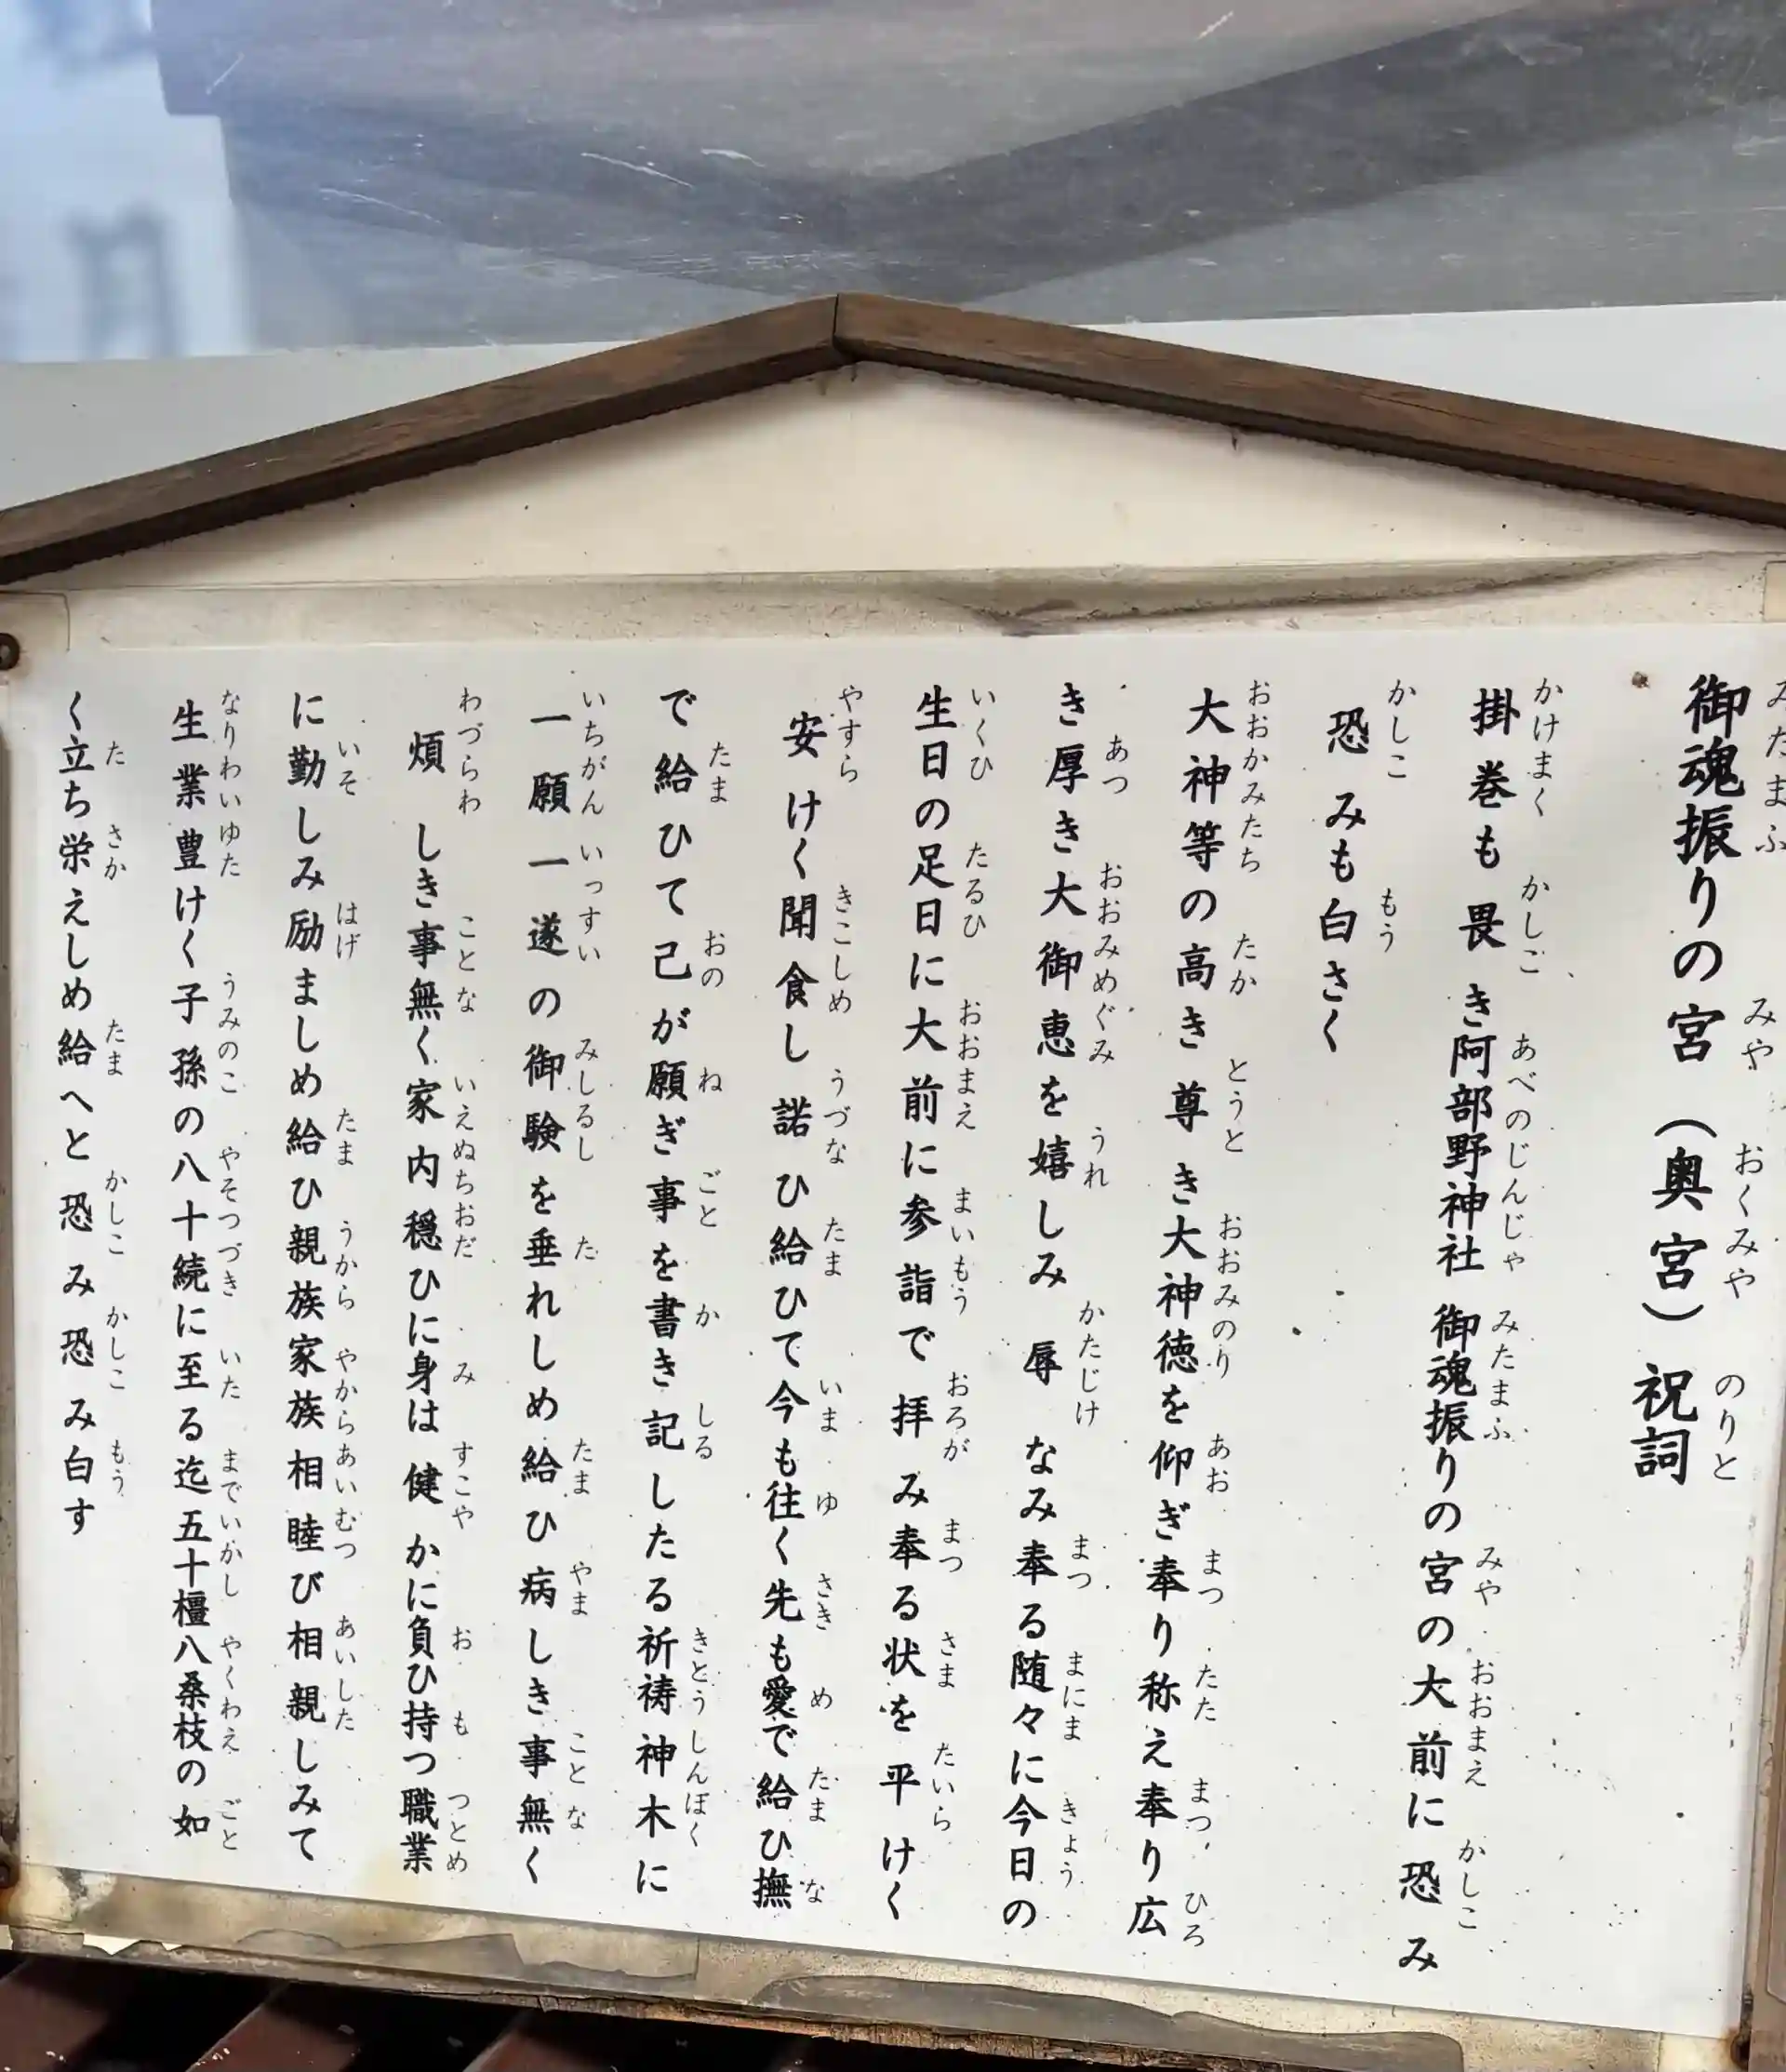 御魂振りの宮（奥宮）祝詞
掛巻も畏き阿部野神社御魂振りの宮の大前に恐み
恐みも白さく
大神等の高き尊き大神徳を仰ぎ奉り称え奉り広
き厚き大御恵を嬉しみ辱なみ奉る随々に今日の
生日の足日に大前に参詣で拝み奉る状を平けく
安けく聞食し諾ひ給ひて今も往く先も愛で給ひ撫
で給ひて己が願ぎ事を書き記したる祈祷神木に
一願一遂の御験を垂れしめ給ひ病しき事無く
煩しき事無く家内穏ひに身は健かに負ひ持つ職業
に勤しみ励ましめ給ひ親族家族相睦び相親しみて
生業豊けく子孫の八十続に至る迄五十橿八桑枝の如
く立ち栄えしめ給へと恐み恐み白す